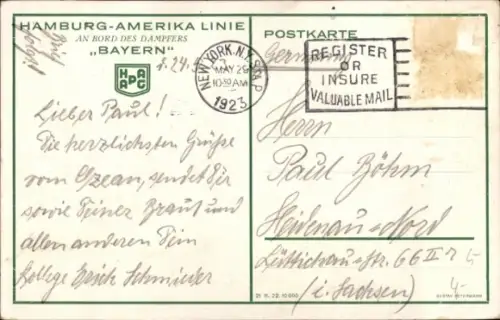 HAMBURG-AMERIKA LINIE
AN BORD DES DAMPFERS
„BAYERN"
HAPAG
Lieber Paul!
Die herzlichsten Grüße
vom Ozean, sendet Dir
sowie Deiner Braut und
allen anderen Dein
Kollege Erich Schmieder
POSTKARTE
Germany
NEW YORK, N.Y. STA. P
MAY 29
10-30 AM
1923
REGISTER
OR
INSURE
VALUABLE MAIL
Herrn
Paul Böhm
Heidenau-Nord
Lüttichau-Str. 66 II r
(i. Sachsen)